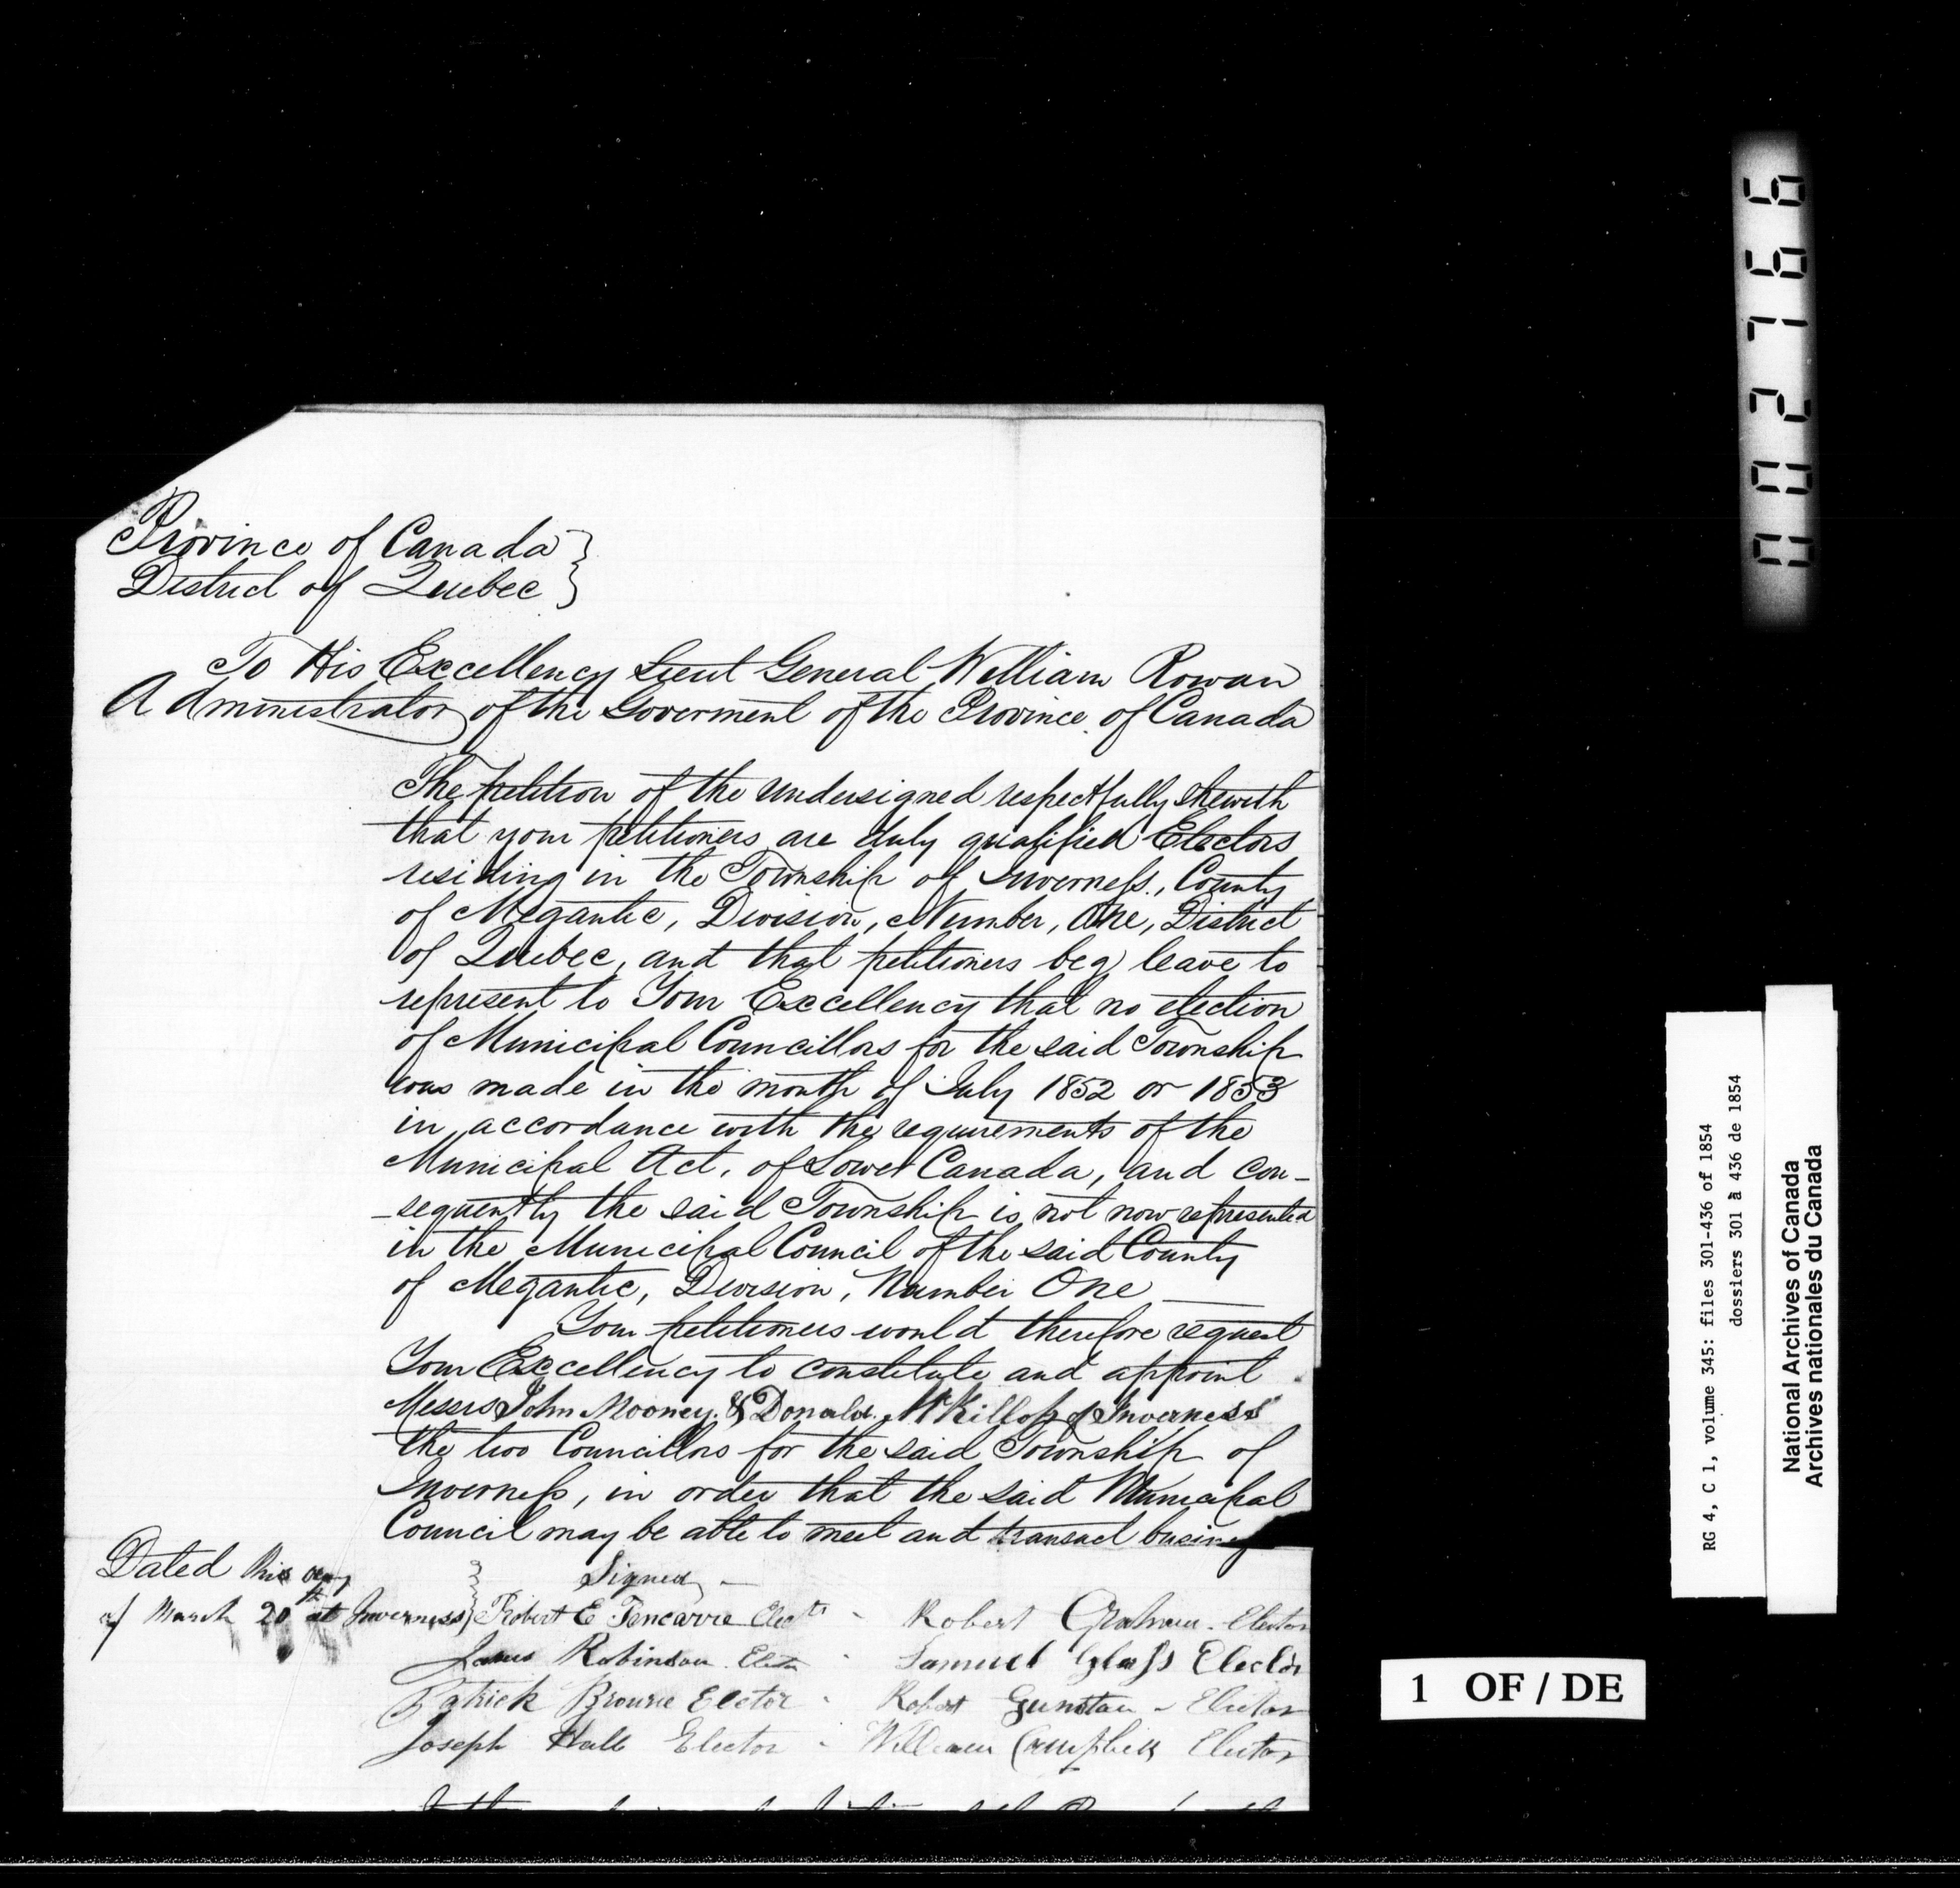 Province of Canada }
District of Quebec }
To His Excellency Lieut General William Rowan
Administrator of the Goverment of the Province of Canada
The petition of the undersigned respectfully sheweth
that your petitioners are duly qualified Electors
residing in the Township of Inverness, County
of Megantic, Division, Number, One, District
of Quebec, and that petitioners beg leave to
represent to Your Excellency that no election
of Municipal Councillors for the said Township
was made in the month of July 1852 or 1853
in accordance with the requirements of the
Municipal Act, of Lower Canada, and con-
-sequently the said Township is not now represented
in the Municipal Council of the said County
of Megantic, Division, Number One
Your petitioners would therefore request
Your Excellency to constitute and appoint
Messrs John Mooney & Donald McKillop of Inverness
the two Councillors for the said Township of
Inverness, in order that the said Municipal
Council may be able to meet and transact
Dated this day
Signed
of March 20th at Inverness } Robert E Elector - Robert Graham - Elector
James Robinson Elector - Samuel Glass Elector
Patrick Browne Elector - Robert - Elector
Joseph Hall Elector - William Campbell Elector
002766
RG 4, C 1, volume 345: files 301-436 of 1854
dossiers 301 à 436 de 1854
National Archives of Canada
Archives nationales du Canada
1 OF / DE